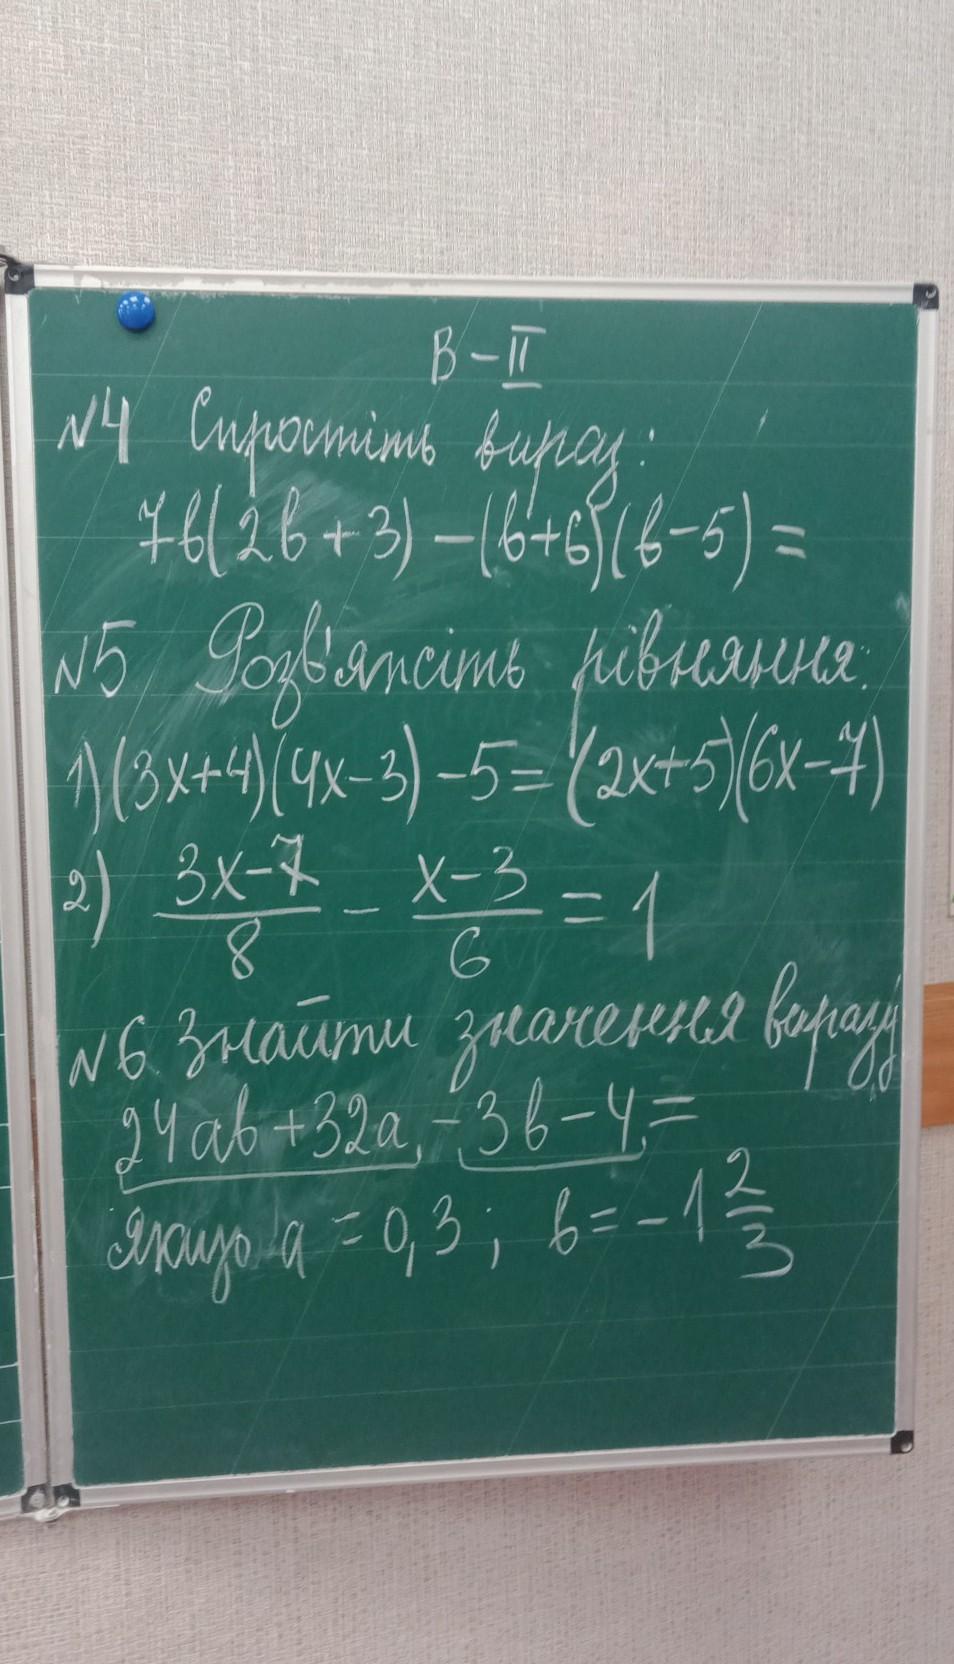 В - II
№4 Спростіть вираз:
7b(2b+3) - (b+6)(b-5) =
№5 Розв'яжіть рівняння:
1) (3x+4)(4x-3) - 5 = (2x+5)(6x-7)
2) \frac{3x-7}{8} - \frac{x-3}{6} = 1
№6 Знайти значення виразу
24ab + 32a - 3b - 4 =
якщо a = 0,3; b = -1\frac{2}{3}